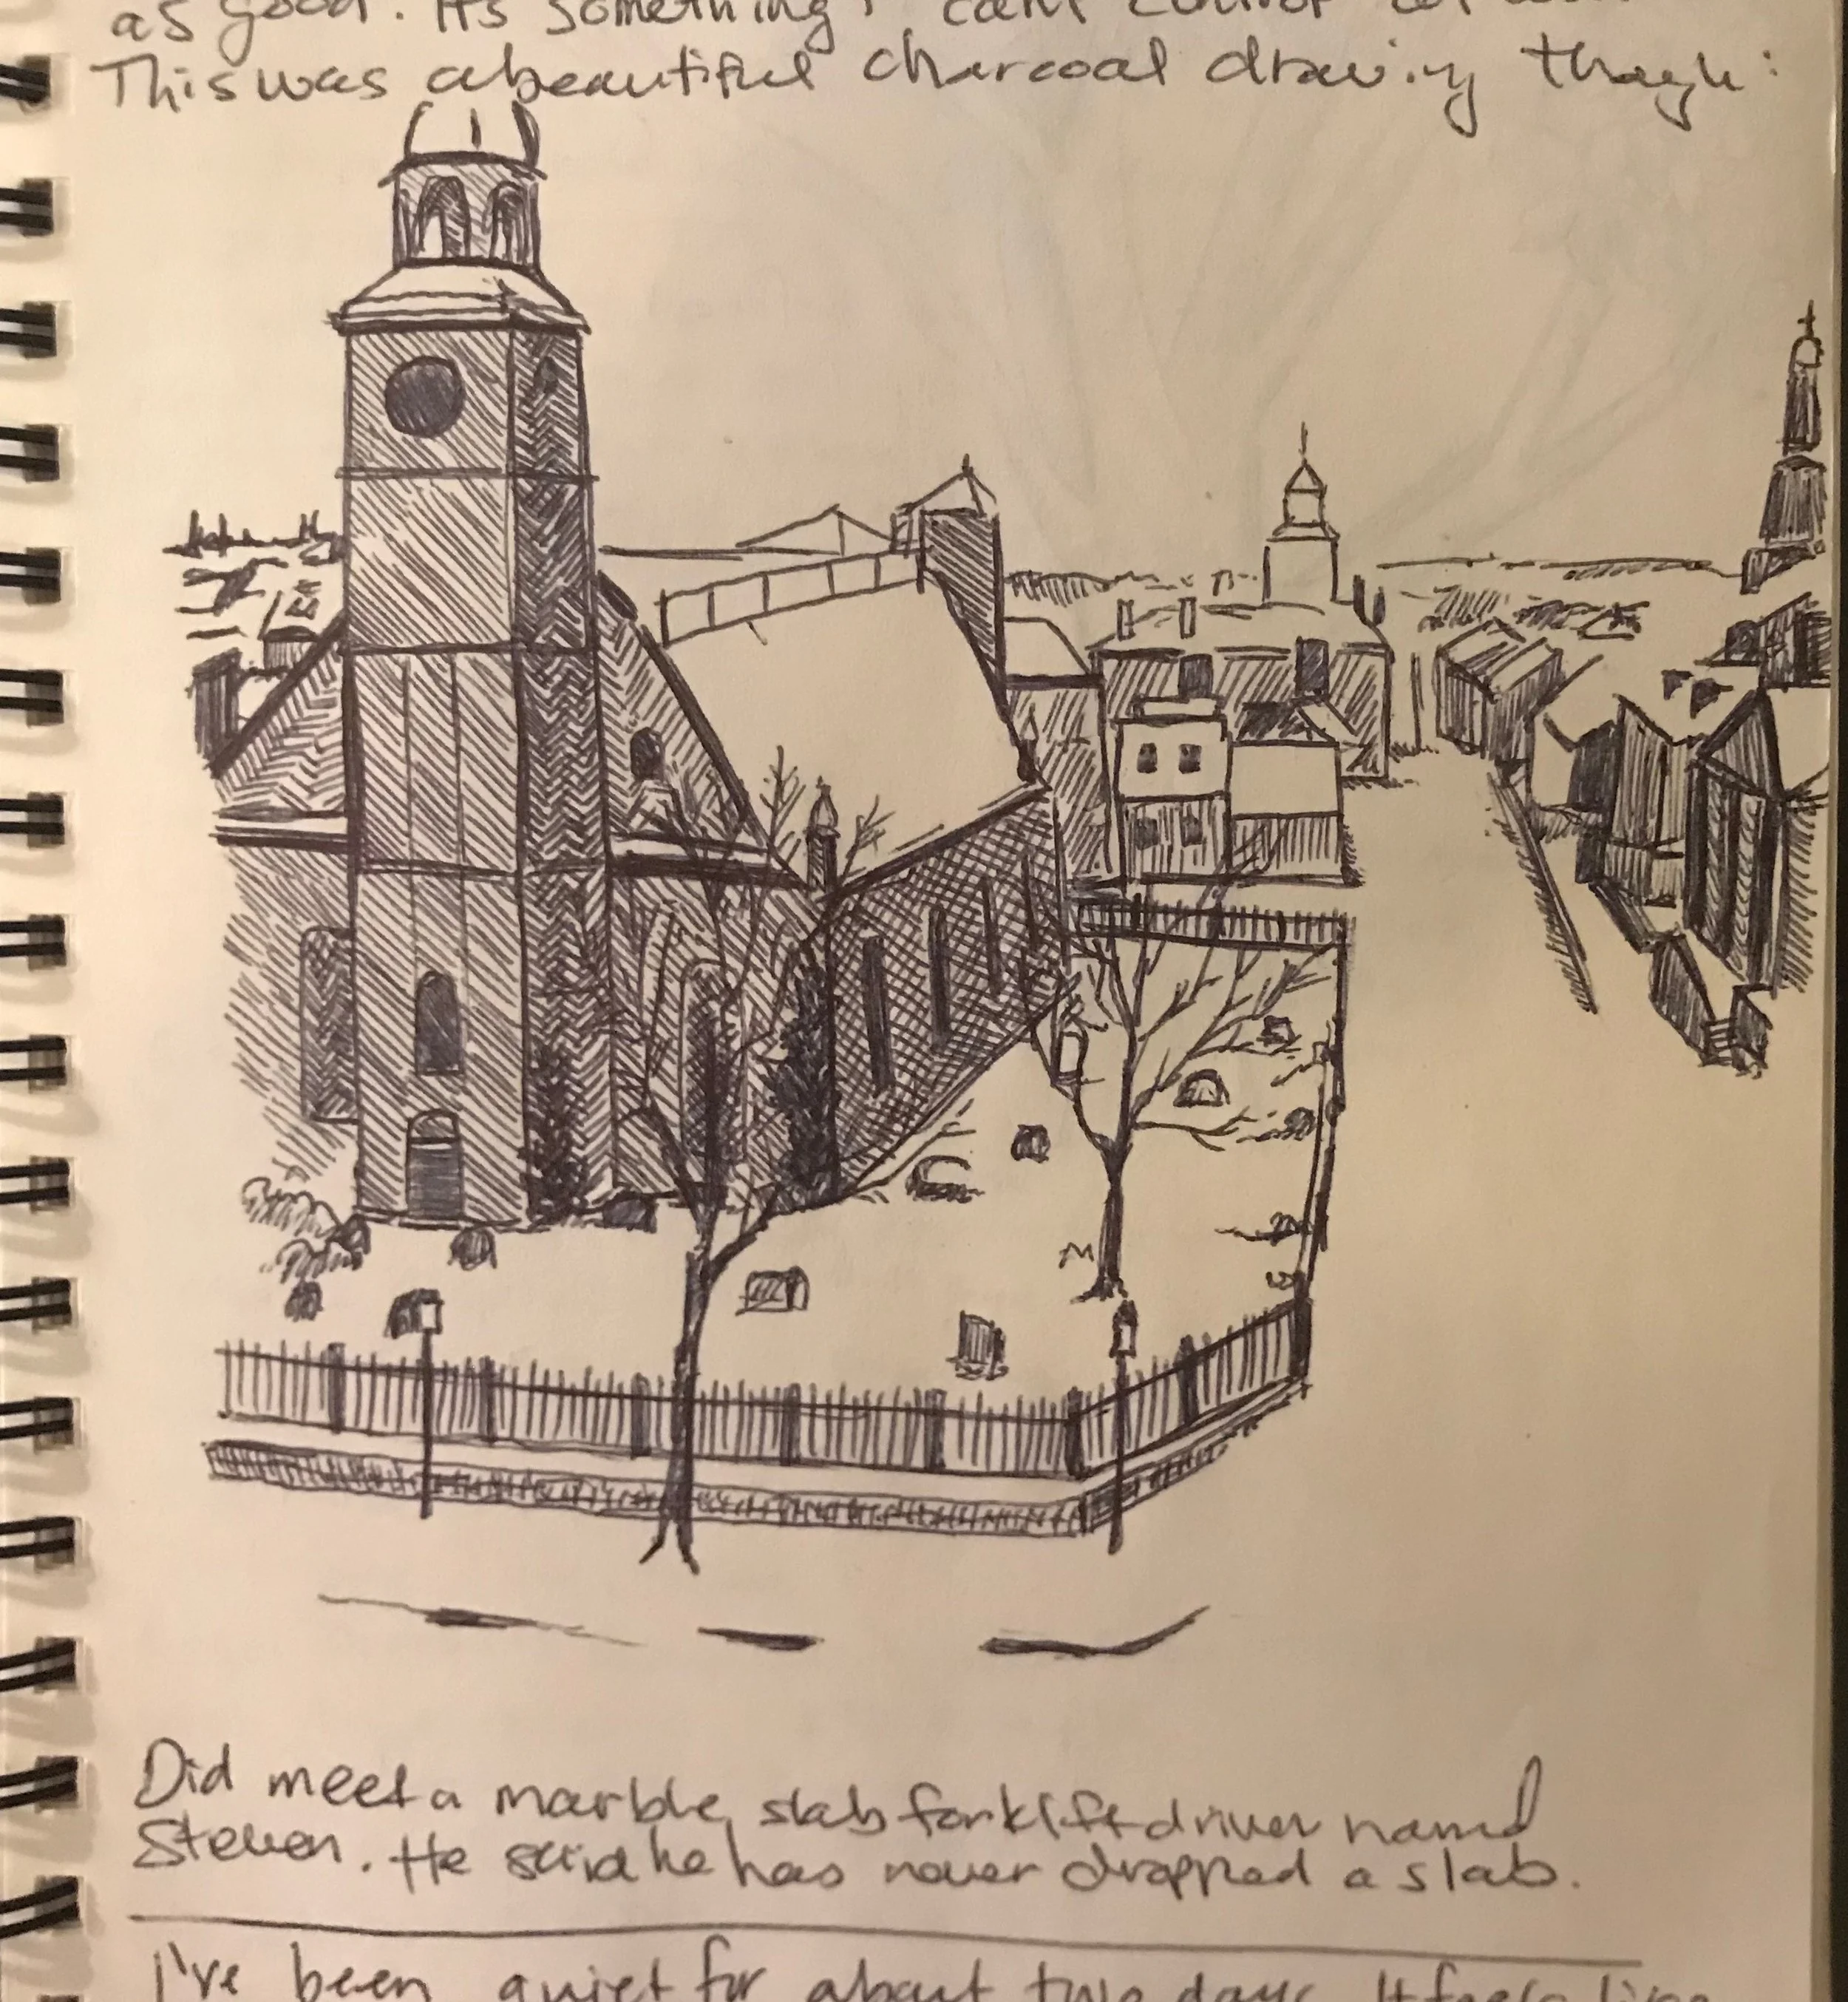 as good. It's something I can't control
This was a beautiful charcoal drawing though:
Did meet a marble slab forklift driver named
Steven. He said he has never dropped a slab.
I've been quiet for about two days. It feels